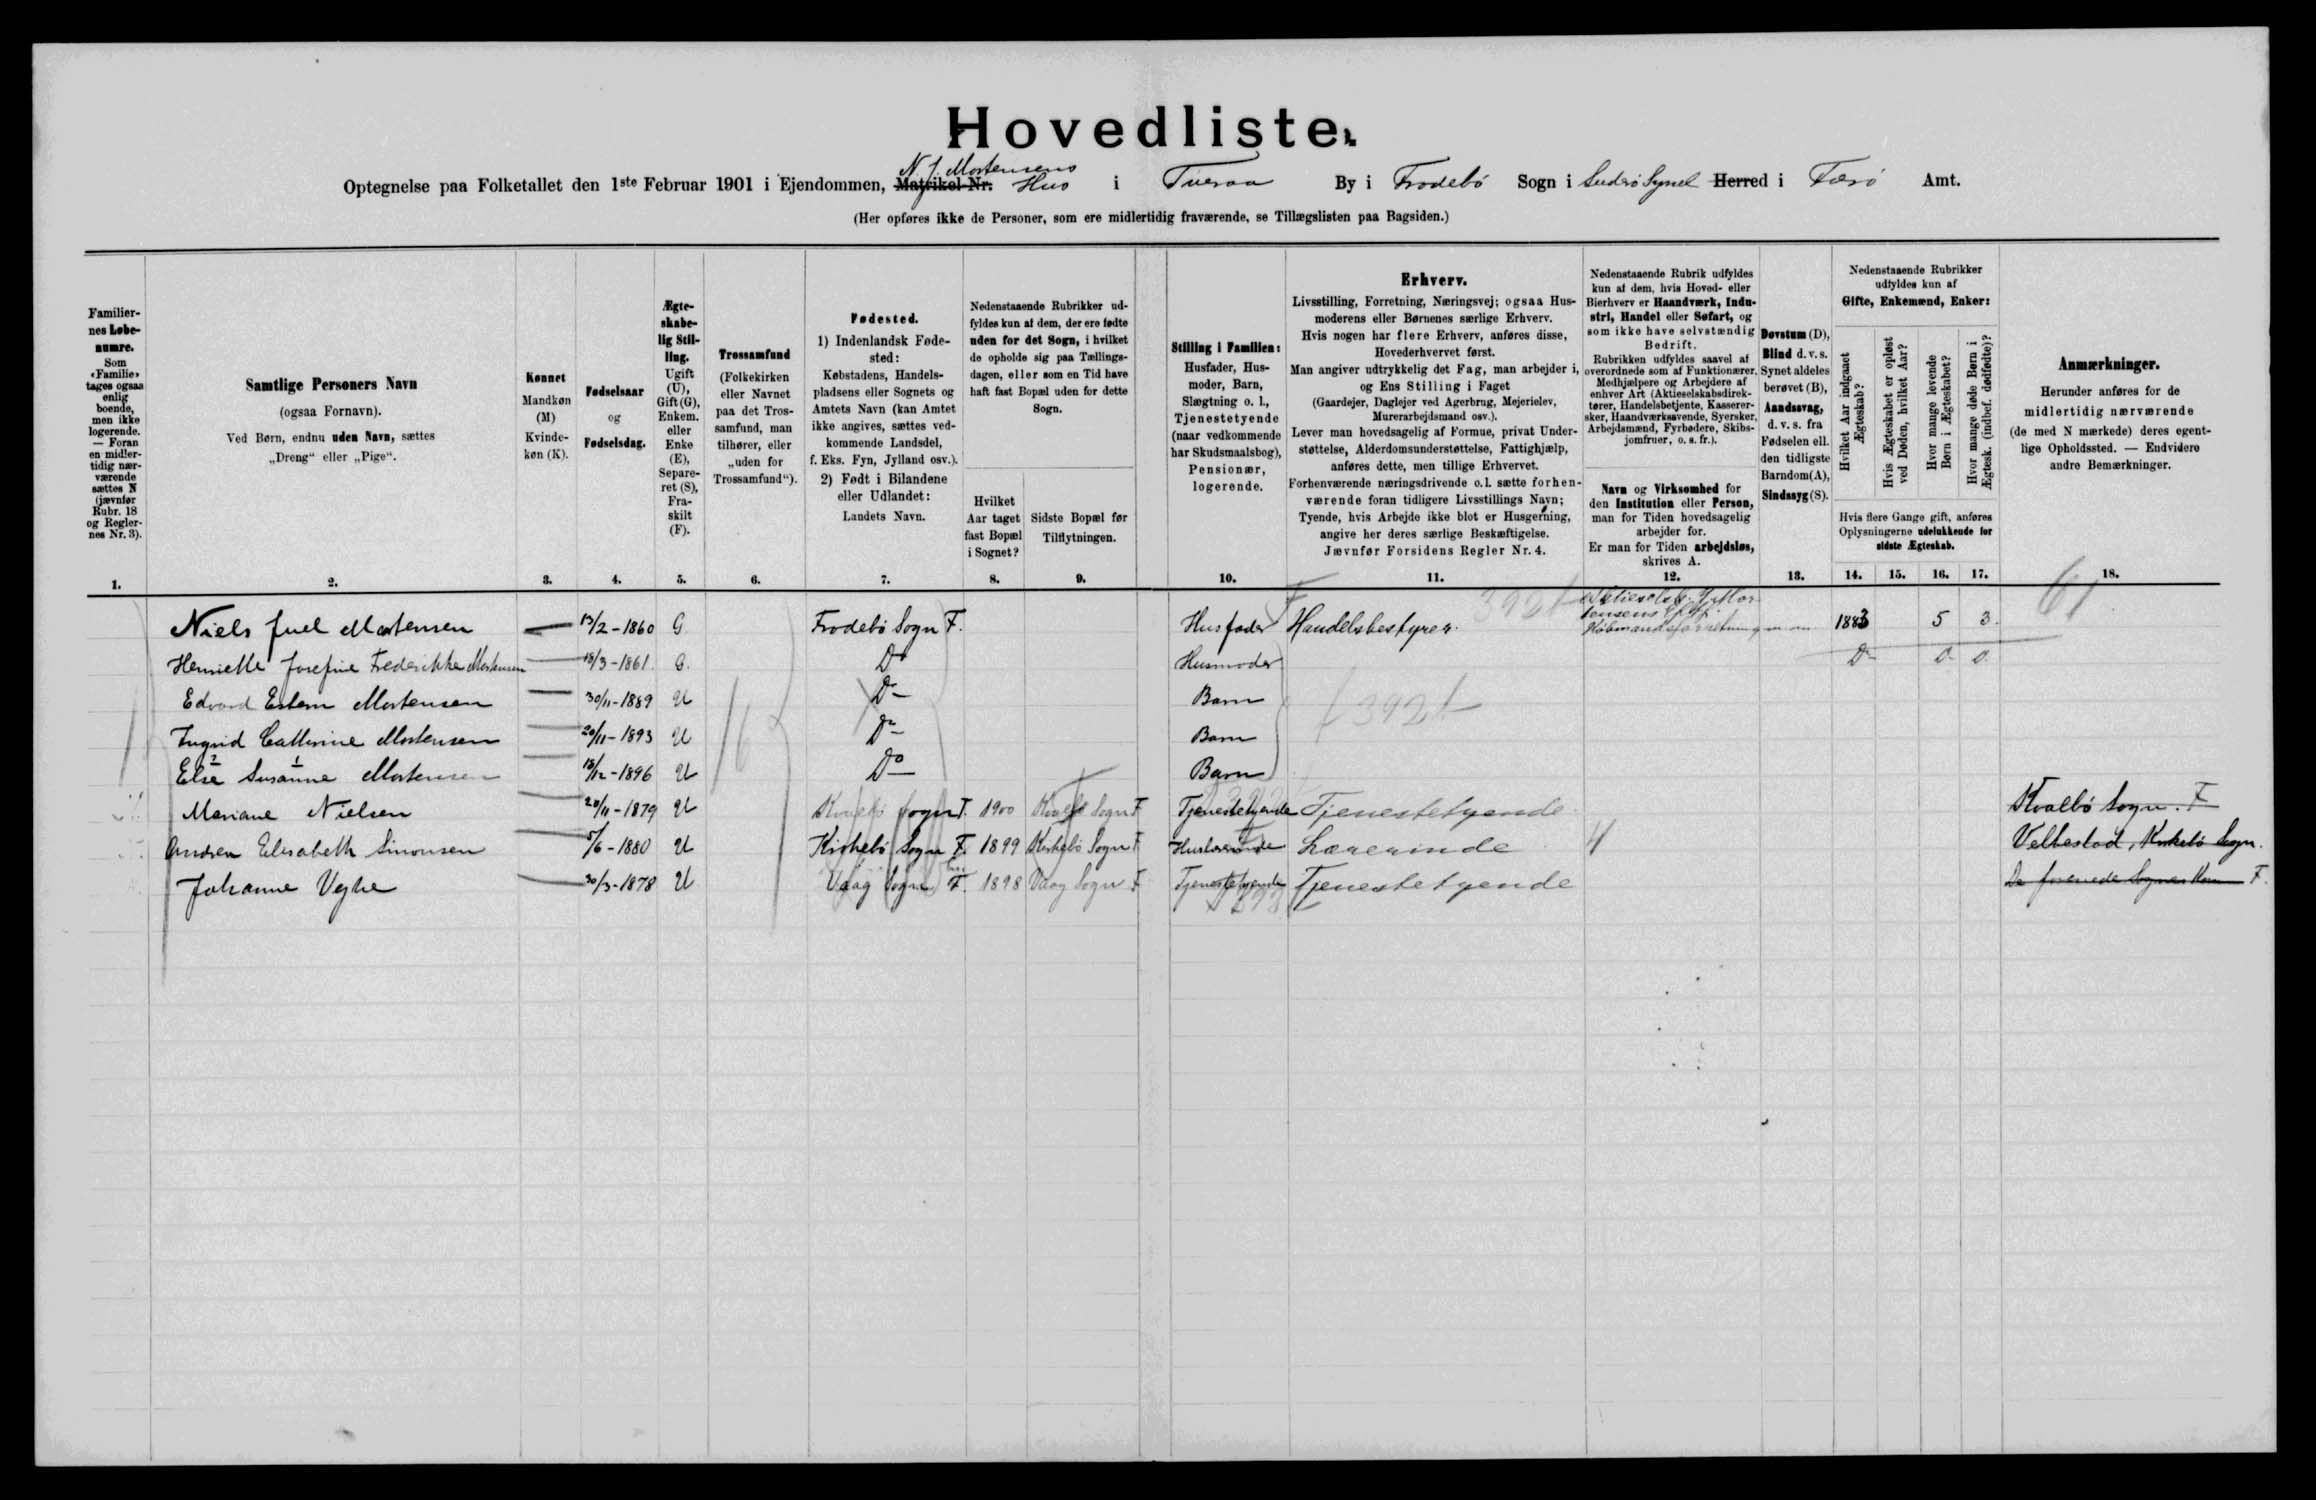 Hovedliste.
N. J. Mortensens
Optegnelse paa Folketallet den 1ste Februar 1901 i Ejendommen, Matrikel-Nr. Hus i Tveraa By i Frodebö Sogn i Suderö Syssel Herred i Færö Amt.
(Her opføres ikke de Personer, som ere midlertidig fraværende, se Tillægslisten paa Bagsiden.)
Familiernes Løbenumre.
Som «Familie» tages ogsaa enlig boende, men ikke logerende. — Foran en midlertidig nærværende sættes N (jævnfør Rubr. 18 og Reglernes Nr. 3).
Samtlige Personers Navn
(ogsaa Fornavn).
Ved Børn, endnu uden Navn, sættes
„Dreng“ eller „Pige“.
Kønnet
Mandkøn (M)
Kvindekøn (K).
Fødselsaar
og
Fødselsdag.
Ægteskabelig Stilling.
Ugift (U), Gift (G), Enkem. eller Enke (E), Separeret (S), Fraskilt (F).
Trossamfund
(Folkekirken eller Navnet paa det Trossamfund, man tilhører, eller „uden for Trossamfund“).
Fødested.
1) Indenlandsk Fødested:
Købstadens, Handelspladsens eller Sognets og Amtets Navn (kan Amtet ikke angives, sættes vedkommende Landsdel, f. Eks. Fyn, Jylland osv.).
2) Født i Bilandene eller Udlandet:
Landets Navn.
Nedenstaaende Rubrikker udfyldes kun af dem, der ere fødte uden for det Sogn, i hvilket de opholde sig paa Tællingsdagen, eller som en Tid have haft fast Bopæl uden for dette Sogn.
Hvilket Aar taget fast Bopæl i Sognet?
Sidste Bopæl før Tilflytningen.
Stilling i Familien:
Husfader, Husmoder, Barn, Slægtning o. l., Tjenestetyende (naar vedkommende har Skudsmaalsbog), Pensionær, logerende.
Erhverv.
Livsstilling, Forretning, Næringsvej; ogsaa Husmoderens eller Børnenes særlige Erhverv.
Hvis nogen har flere Erhverv, anføres disse, Hovederhvervet først.
Man angiver udtrykkelig det Fag, man arbejder i, og Ens Stilling i Faget
(Gaardejer, Daglejer ved Agerbrug, Mejerielev, Murerarbejdsmand osv.).
Lever man hovedsagelig af Formue, privat Understøttelse, Alderdomsunderstøttelse, Fattighjælp, anføres dette, men tillige Erhvervet.
Forhenværende næringsdrivende o. l. sætte forhenværende foran tidligere Livsstillings Navn;
Tyende, hvis Arbejde ikke blot er Husgerning, angive her deres særlige Beskæftigelse.
Jævnfør Forsidens Regler Nr. 4.
Nedenstaaende Rubrik udfyldes kun af dem, hvis Hoved- eller Bierhverv er Haandværk, Industri, Handel eller Søfart, og som ikke have selvstændig Bedrift.
Rubrikken udfyldes saavel af overordnede som af Funktionærer, Medhjælpere og Arbejdere af enhver Art (Aktieselskabsdirektører, Handelsbetjente, Kasserersker, Haandværkssvende, Syersker, Arbejdsmænd, Fyrbødere, Skibsjomfruer, o. s. fr.).
Navn og Virksomhed for den Institution eller Person, man for Tiden hovedsagelig arbejder for.
Er man for Tiden arbejdsløs, skrives A.
Døvstum (D), Blind d. v. s. Synet aldeles berøvet (B), Aandssvag, d. v. s. fra Fødselen ell. den tidligste Barndom (A), Sindssyg (S).
Nedenstaaende Rubrikker udfyldes kun af
Gifte, Enkemænd, Enker:
Hvilket Aar indgaaet Ægteskab?
Hvis Ægteskabet er opløst ved Døden, hvilket Aar?
Hvor mange levende Børn i Ægteskabet?
Hvor mange døde Børn i Ægtesk. (indbef. dødfødte)?
Hvis flere Gange gift, anføres Oplysningerne udelukkende for sidste Ægteskab.
Anmærkninger.
Herunder anføres for de midlertidig nærværende (de med N mærkede) deres egentlige Opholdssted. — Endvidere andre Bemærkninger.
1. 2. 3. 4. 5. 6. 7. 8. 9. 10. 11. 12. 13. 14. 15. 16. 17. 18.
61
Niels Juel Mortensen 13/2-1860 G. Frodebö Sogn F. Husfader Handelsbestyrer 1883 5 3.
Henriette Josefine Frederikke Mortensen 18/3-1861 G. Do Husmoder Do
Edvard Estern Mortensen 30/11-1889 U Do Barn 392
Ingrid Cathrine Mortensen 20/11-1893 U Do Barn
Else Susanne Mortensen 18/12-1896 U Do Barn
Mariane Nielsen 20/11-1879 U Kvalbö Sogn F. 1900 Kvalbö Sogn F Tjenestetyende Tjenestetyende Kvalbö Sogn. F
Andrea Elisabeth Simonsen 5/6-1880 U Kirkebö Sogn F. 1899 Kirkebö Sogn F Huslærerinde Lærerinde Velbestad, Kirkebö Sogn.
Johanne Vejhe 30/3-1878 U Vaag Sogn F. 1898 Vaag Sogn F Tjenestetyende Tjenestetyende F.